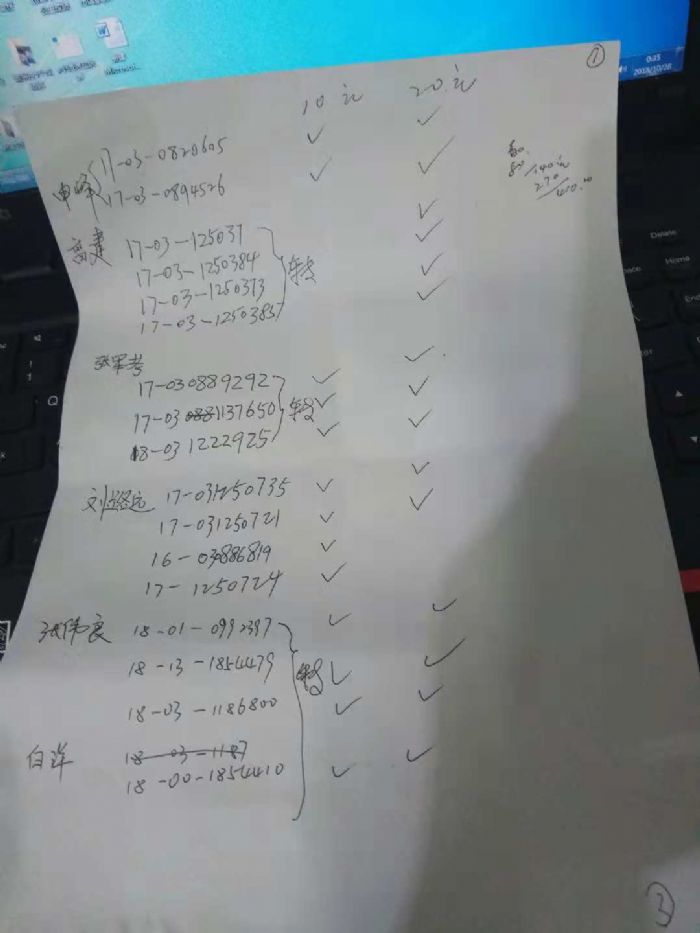 ①
10元 20元
申峰 17-03-0820605 ✓ ✓
17-03-0894526 ✓ ✓
140元
270
410.00
高建 17-03-125037 ✓
17-03-1250384 ✓
17-03-1250373 ✓
17-03-1250383 ✓
张军考 ✓
17-030889292 ✓ ✓
17-03 1137650 ✓ ✓
18-03 1222925 ✓
17-031250735 ✓ ✓
17-031250721 ✓
16-030886819 ✓
17-1250724 ✓
张伟良 18-01-0992397 ✓ ✓
18-13-1854479 ✓ ✓
18-03-1186800 ✓ ✓
白洋 18-03-1187 ✓
18-00-1854410 ✓